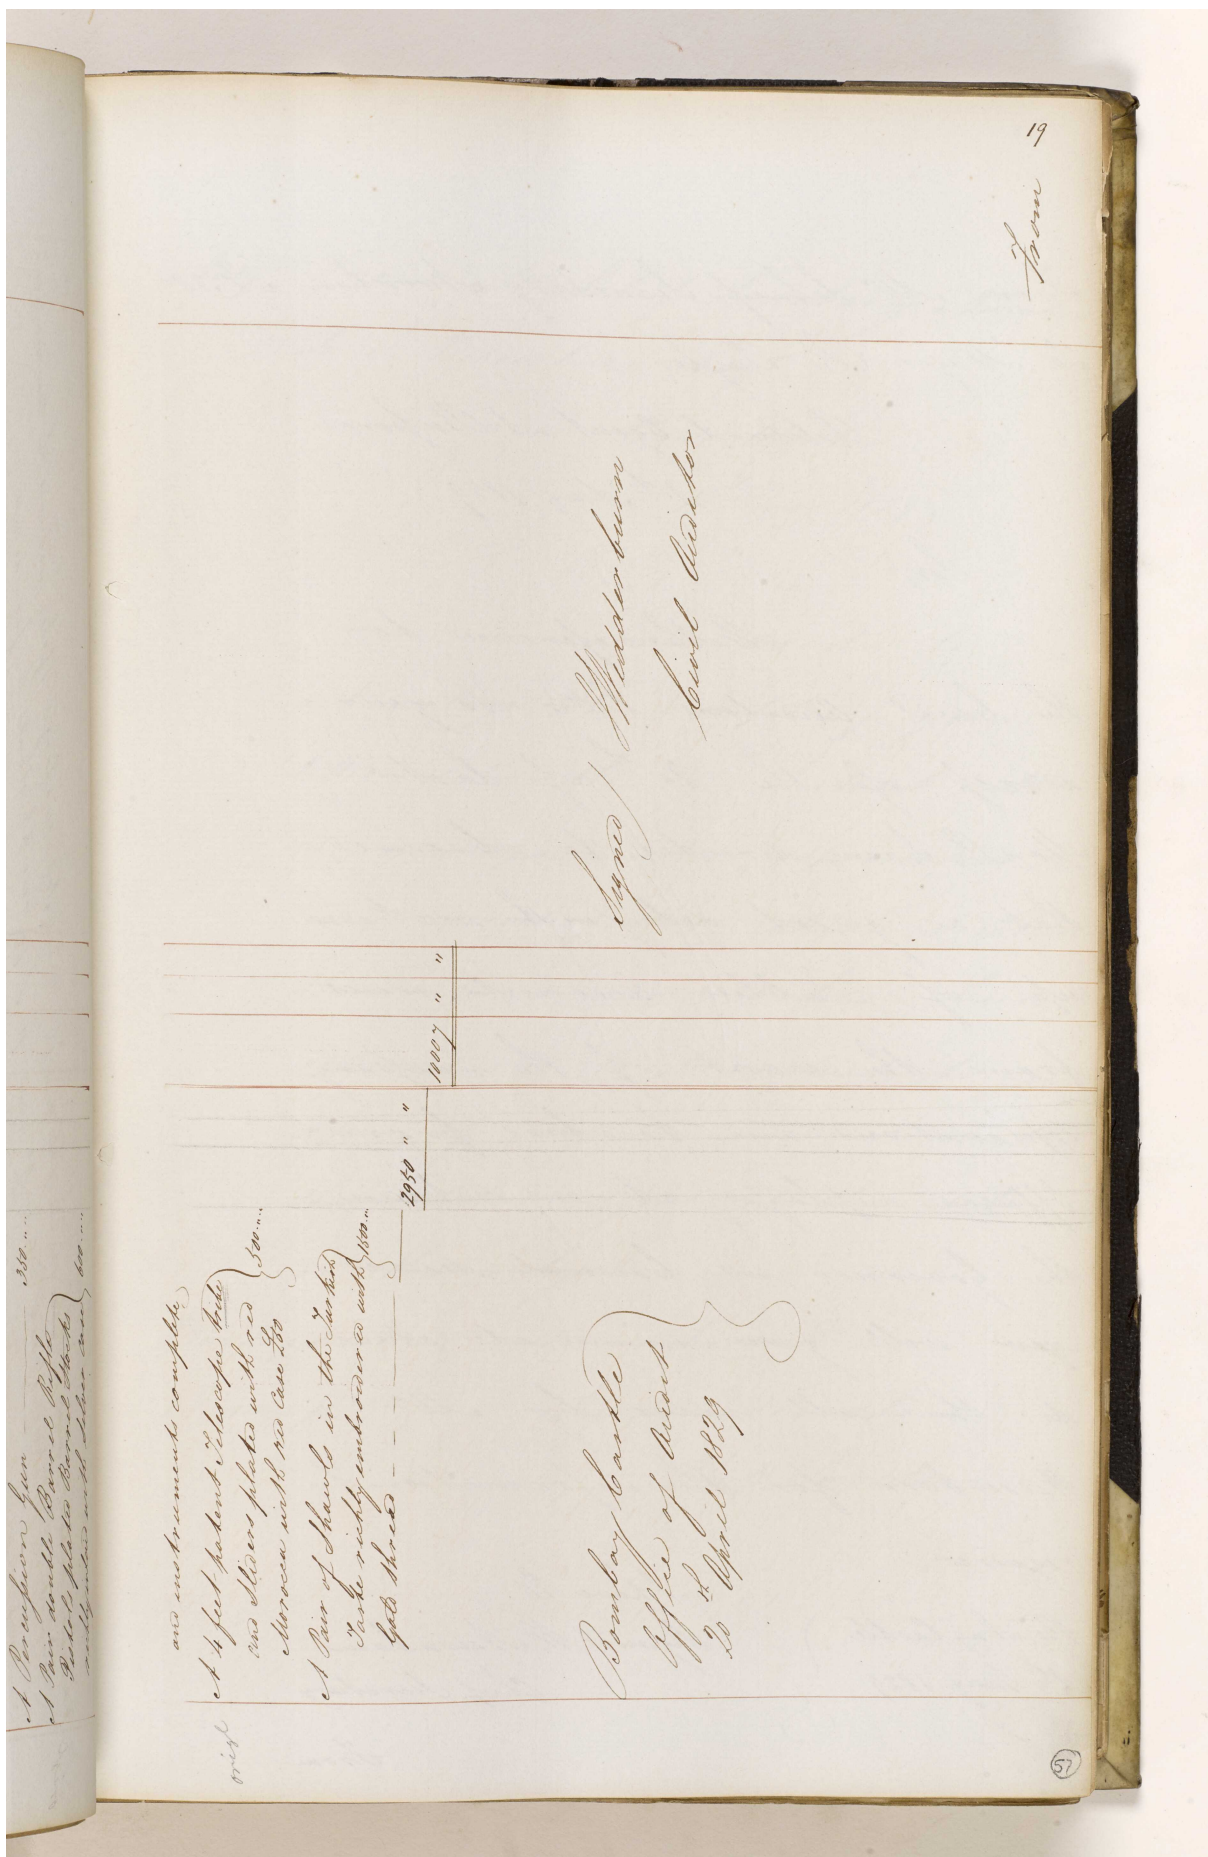 A Percussion Gun 350 " "
A Pair double Barrel Rifle
Pistols plated Barrel Stocks
richly inlaid with silver 600 " "
19
From
and instruments complete
orig
A 4 feet patent Telescope tribe
and Sliders plated with red
Morocca with red case £60 500 " "
A Pair of Shawls in the Turkish
Taste richly embroidered with
Gold thread 1500 " "
2950 " "
10007 " "
Bombay Castle
Office of Audit
20th April 1829
Signed / Wedderburn
Civil Auditor
57